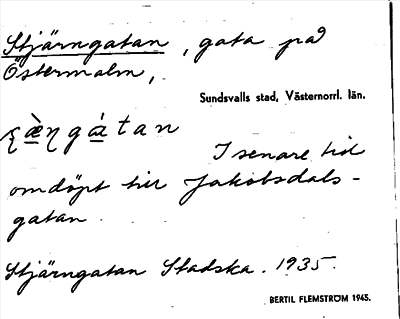 Stjärngatan, gata på
Östermalm,
Sundsvalls stad, Västernorrl. län.
I senare tid
omdöpt till Jakobsdals-
gatan.
Stjärngatan Stadska. 1935.
BERTIL FLEMSTRÖM 1945.